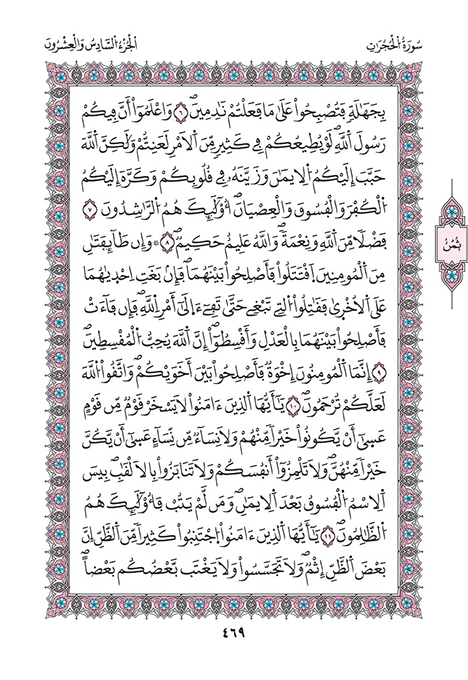 سُورَةُ الْحُجُرَٰتِ
الْجُزْءُ السَّادِسُ وَالْعِشْرُونَ
بِجَهَٰلَةٖ فَتُصْبِحُواْ عَلَىٰ مَا فَعَلْتُمْ نَٰدِمِينَۖ ٦ وَاعْلَمُوٓاْ أَنَّ فِيكُمْ
رَسُولَ اَللَّهِۖ لَوْ يُطِيعُكُمْ فِے كَثِيرٖ مِّنَ اَلَامْرِ لَعَنِتُّمْۖ وَلَٰكِنَّ اَللَّهَ
حَبَّبَ إِلَيْكُمُ اَلِايمَٰنَ وَزَيَّنَهُۥ فِے قُلُوبِكُمْ وَكَرَّهَ إِلَيْكُمُ
اُلْكُفْرَ وَالْفُسُوقَ وَالْعِصْيَانَۖ أُوْلَٰٓئِكَ هُمُ اُلرَّٰشِدُونَ ٧
فَضْلاٗ مِّنَ اَللَّهِ وَنِعْمَةٗۖ وَاللَّهُ عَلِيمٌ حَكِيمٞۖ ٨ وَإِن طَآئِفَتَٰنِ
مِنَ اَلْمُومِنِينَ اَقْتَتَلُواْ فَأَصْلِحُواْ بَيْنَهُمَاۖ فَإِنۢ بَغَتِ اِحْدَيٰهُمَا
عَلَى اَلُاخْرَىٰ فَقَٰتِلُواْ اُلتِے تَبْغِے حَتَّىٰ تَفِےٓءَ ا۪لَىٰٓ أَمْرِ اِللَّهِۖ فَإِن فَآءَتْ
فَأَصْلِحُواْ بَيْنَهُمَا بِالْعَدْلِ وَأَقْسِطُوٓاْۖ إِنَّ اَللَّهَ يُحِبُّ اُلْمُقْسِطِينَۖ
٩ إِنَّمَا اَلْمُومِنُونَ إِخْوَةٞ فَأَصْلِحُواْ بَيْنَ أَخَوَيْكُمْۖ وَاتَّقُواْ اُللَّهَ
لَعَلَّكُمْ تُرْحَمُونَۖ ١٠ يَٰٓأَيُّهَا اَلذِينَ ءَامَنُواْ لَا يَسْخَرْ قَوْمٞ مِّن قَوْمٍ
عَسَىٰٓ أَنْ يَّكُونُواْ خَيْراٗ مِّنْهُمْ وَلَا نِسَآءٞ مِّن نِّسَآءٍ عَسَىٰٓ أَنْ يَّكُنَّ
خَيْراٗ مِّنْهُنَّۖ وَلَا تَلْمِزُوٓاْ أَنفُسَكُمْ وَلَا تَنَابَزُواْ بِالَالْقَٰبِۖ بِيسَ
اَلِاسْمُ اُلْفُسُوقُ بَعْدَ اَلِايمَٰنِۖ وَمَن لَّمْ يَتُبْ فَأُوْلَٰٓئِكَ هُمُ
اُلظَّٰلِمُونَۖ ١١ يَٰٓأَيُّهَا اَلذِينَ ءَامَنُواْ اُجْتَنِبُواْ كَثِيراٗ مِّنَ اَلظَّنِّ إِنَّ
بَعْضَ اَلظَّنِّ إِثْمٞۖ وَلَا تَجَسَّسُواْ وَلَا يَغْتَب بَّعْضُكُم بَعْضاًۖ
ثُمُنٌ
٤٦٩